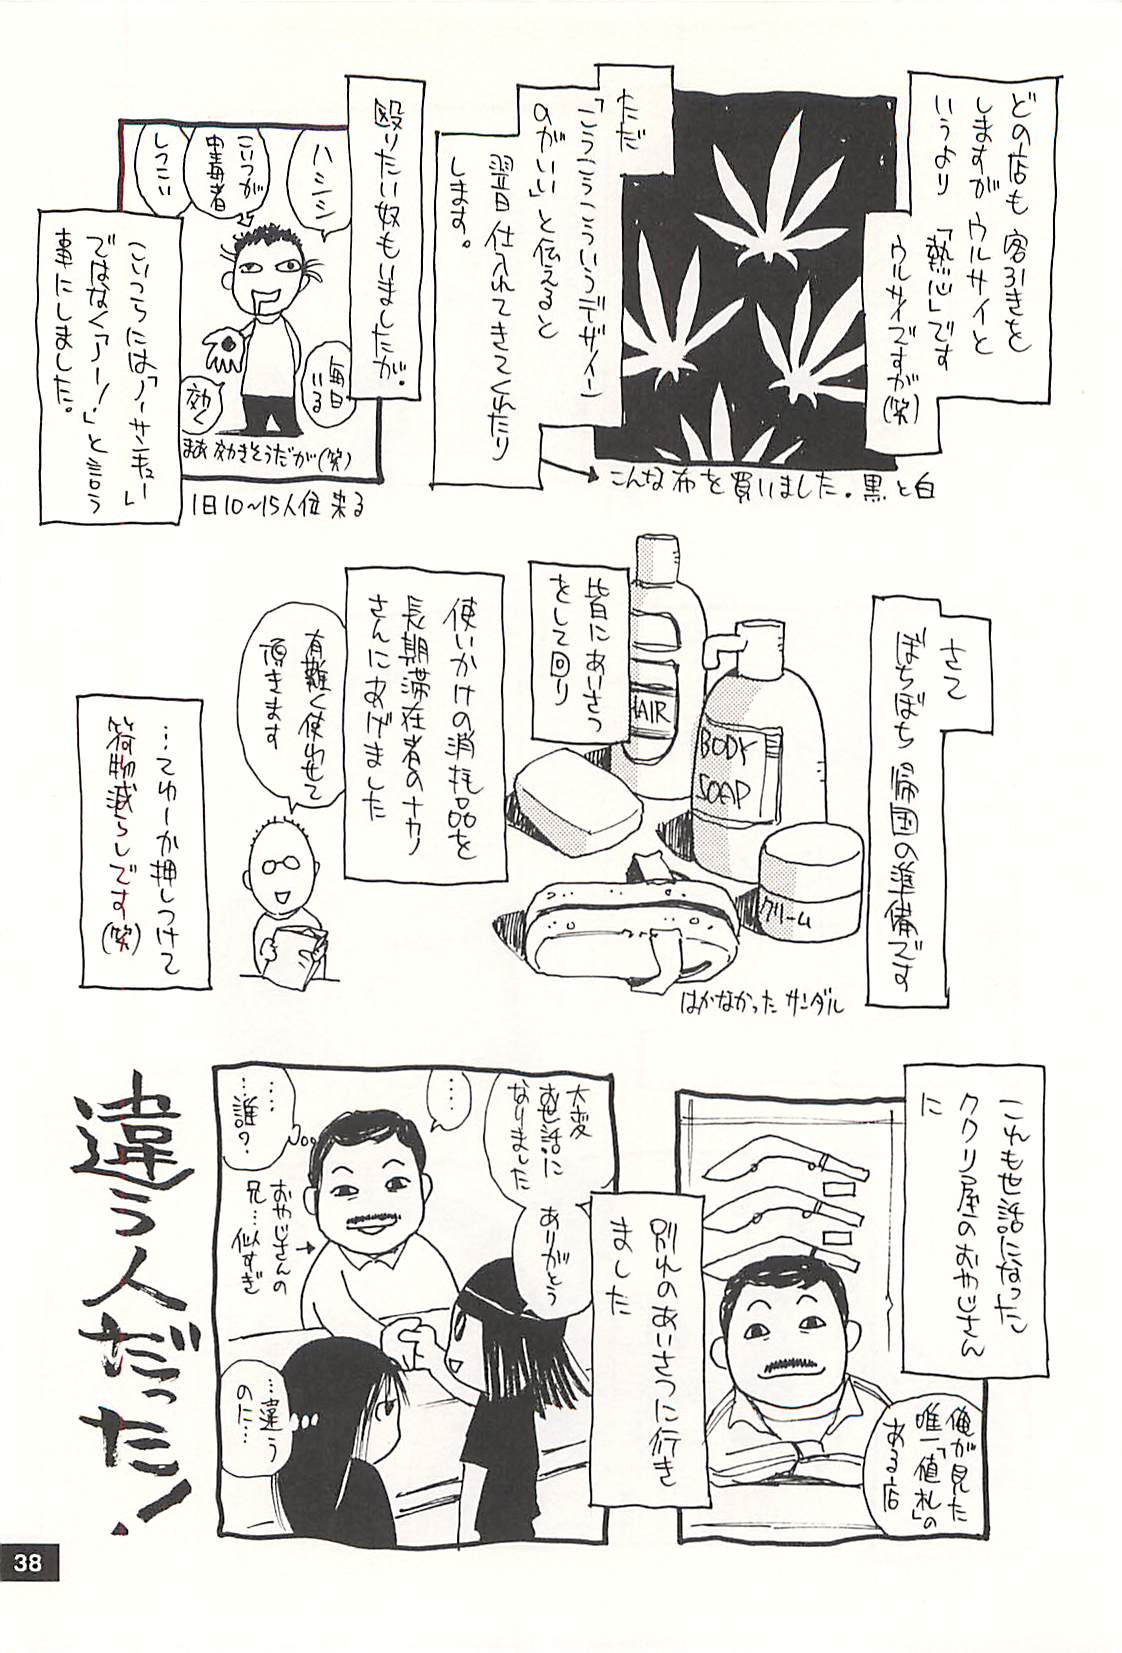 どの店も 客引きを
しますが ウルサイと
いうより 「熱心」です
ウルサイですが(笑)
ただ
「こうこうこういうデザイン
のがいい」と伝えると
翌日 仕入れてきてくれたり
します。
こんな布を買いました。黒と白
殴りたい奴もいましたが。
ハシシ
こいつが
中毒者
しつこい
毎日
いる
効く
まあ 効きそうだが(笑)
1日10~15人位 来る
こいつらには「ノーサンキュー」
ではなく「アー!」と言う
事にしました。
さて
ぼちぼち 帰国の準備です
HAIR
BODY
SOAP
クリーム
はかなかった サンダル
皆にあいさつ
をして回り
使いかけの消耗品を
長期滞在者のナカノ
さんにあげました
有難く使わせて
頂きます
…てゆーか押しつけて
荷物減らしです(笑)
これも世話になった
ククリ屋のおやじさん
に
俺が見た
唯一「値札」の
ある店
別れのあいさつに行き
ました
大変
お世話に
なりました
ありがとう
…
…
…誰?
おやじさんの
兄…似すぎ
…違う
のに…
違う人だった!
38